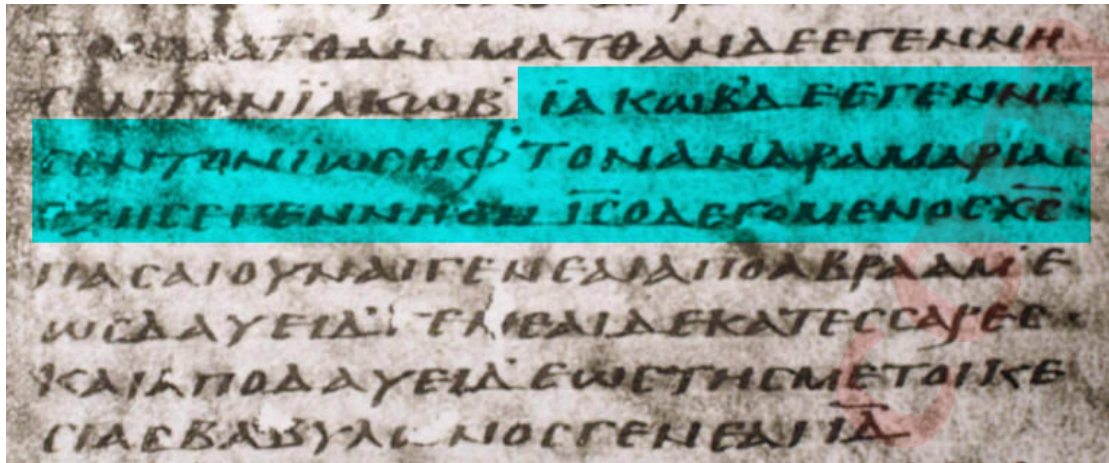 ΤΟΝΜΑΤΘΑΝ ΜΑΤΘΑΝΔΕΕΓΕΝΝΗ
ϹΕΝΤΟΝΪΑΚΩΒ ΪΑΚΩΒΔΕΕΓΕΝΝΗ
ϹΕΝΤΟΝΪΩϹΗΦ ΤΟΝΑΝΔΡΑΜΑΡΙΑϹ
ΕΞΗϹΕΓΕΝΝΗΘΗ ΙϹ̅ΟΛΕΓΟΜΕΝΟϹΧϹ̅
ΠΑϹΑΙΟΥΝΑΙΓΕΝΕΑΙΑΠΟΑΒΡΑΑΜ Ε
ΩϹΔΑΥΕΙΔ ΓΕΝΕΑΙΔΕΚΑΤΕϹϹΑΡΕϹ
ΚΑΙΑΠΟΔΑΥΕΙΔ ΕΩϹΤΗϹΜΕΤΟΙΚΕ
ϹΙΑϹΒΑΒΥΛΩΝΟϹΓΕΝΕΑΙΙΔ̅